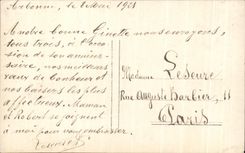 Arbonne, le 6 Mai 1921
A notre bonne Ginette nous envoyons,
tous trois, à l'occa-
sion de son anniver-
saire, nos meilleurs
vœux de bonheur et
nos baisers les plus
affectueux. Maman
et Robert se joignent
à moi pour vous embrasser.
Madame Leseure
Rue Auguste Barbier, 11
Paris